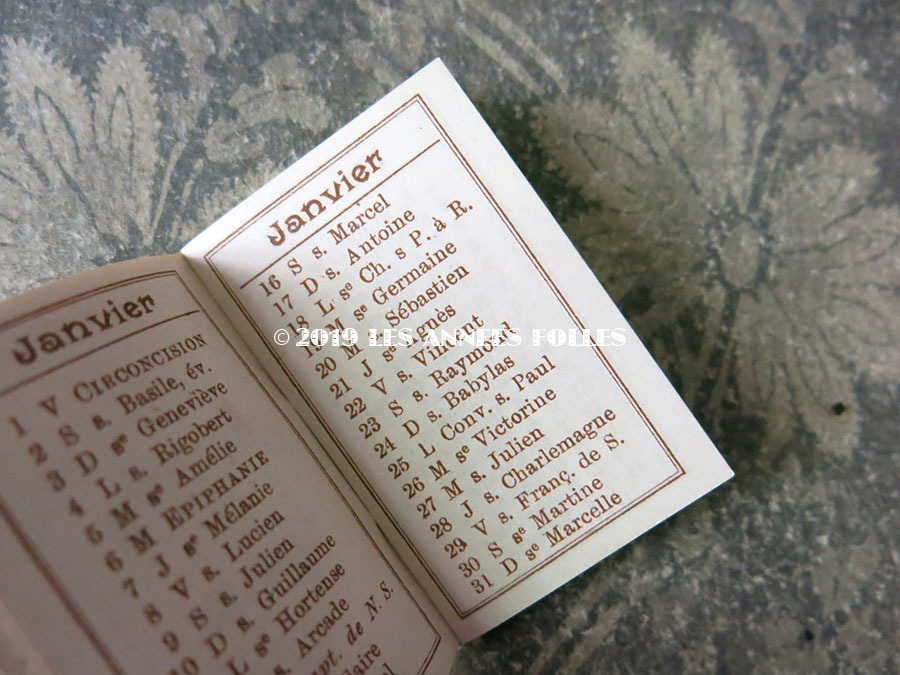 Janvier
1 V CIRCONCISION
2 S s. Basile, év.
3 D sᵉ Geneviève
4 L s. Rigobert
5 M sᵉ Amélie
6 M EPIPHANIE
7 J sᵉ Mélanie
8 V s. Lucien
9 S s. Julien
10 D s. Guillaume
L sᵉ Hortense
s. Arcade
pt. de N. S.
Janvier
16 S s. Marcel
17 D s. Antoine
18 L sᵉ Ch. s P. à R.
19 M sᵉ Germaine
20 M s. Sébastien
21 J sᵉ Agnès
22 V s. Vincent
23 S s. Raymond
24 D s. Babylas
25 L Conv. s. Paul
26 M sᵉ Victorine
27 M s. Julien
28 J s. Charlemagne
29 V s. Franç. de S.
30 S sᵉ Martine
31 D sᵉ Marcelle
© 2019 LES ANNEES FOLLES